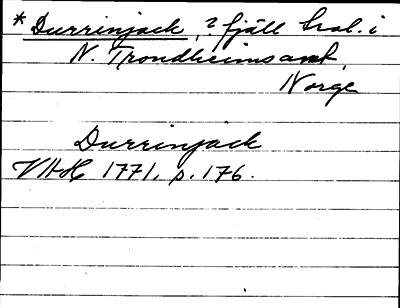 * Durrinjack, ? fjäll trol. i
N. Trondheims amt,
Norge
Durrinjack
VAH 1771, p. 176.